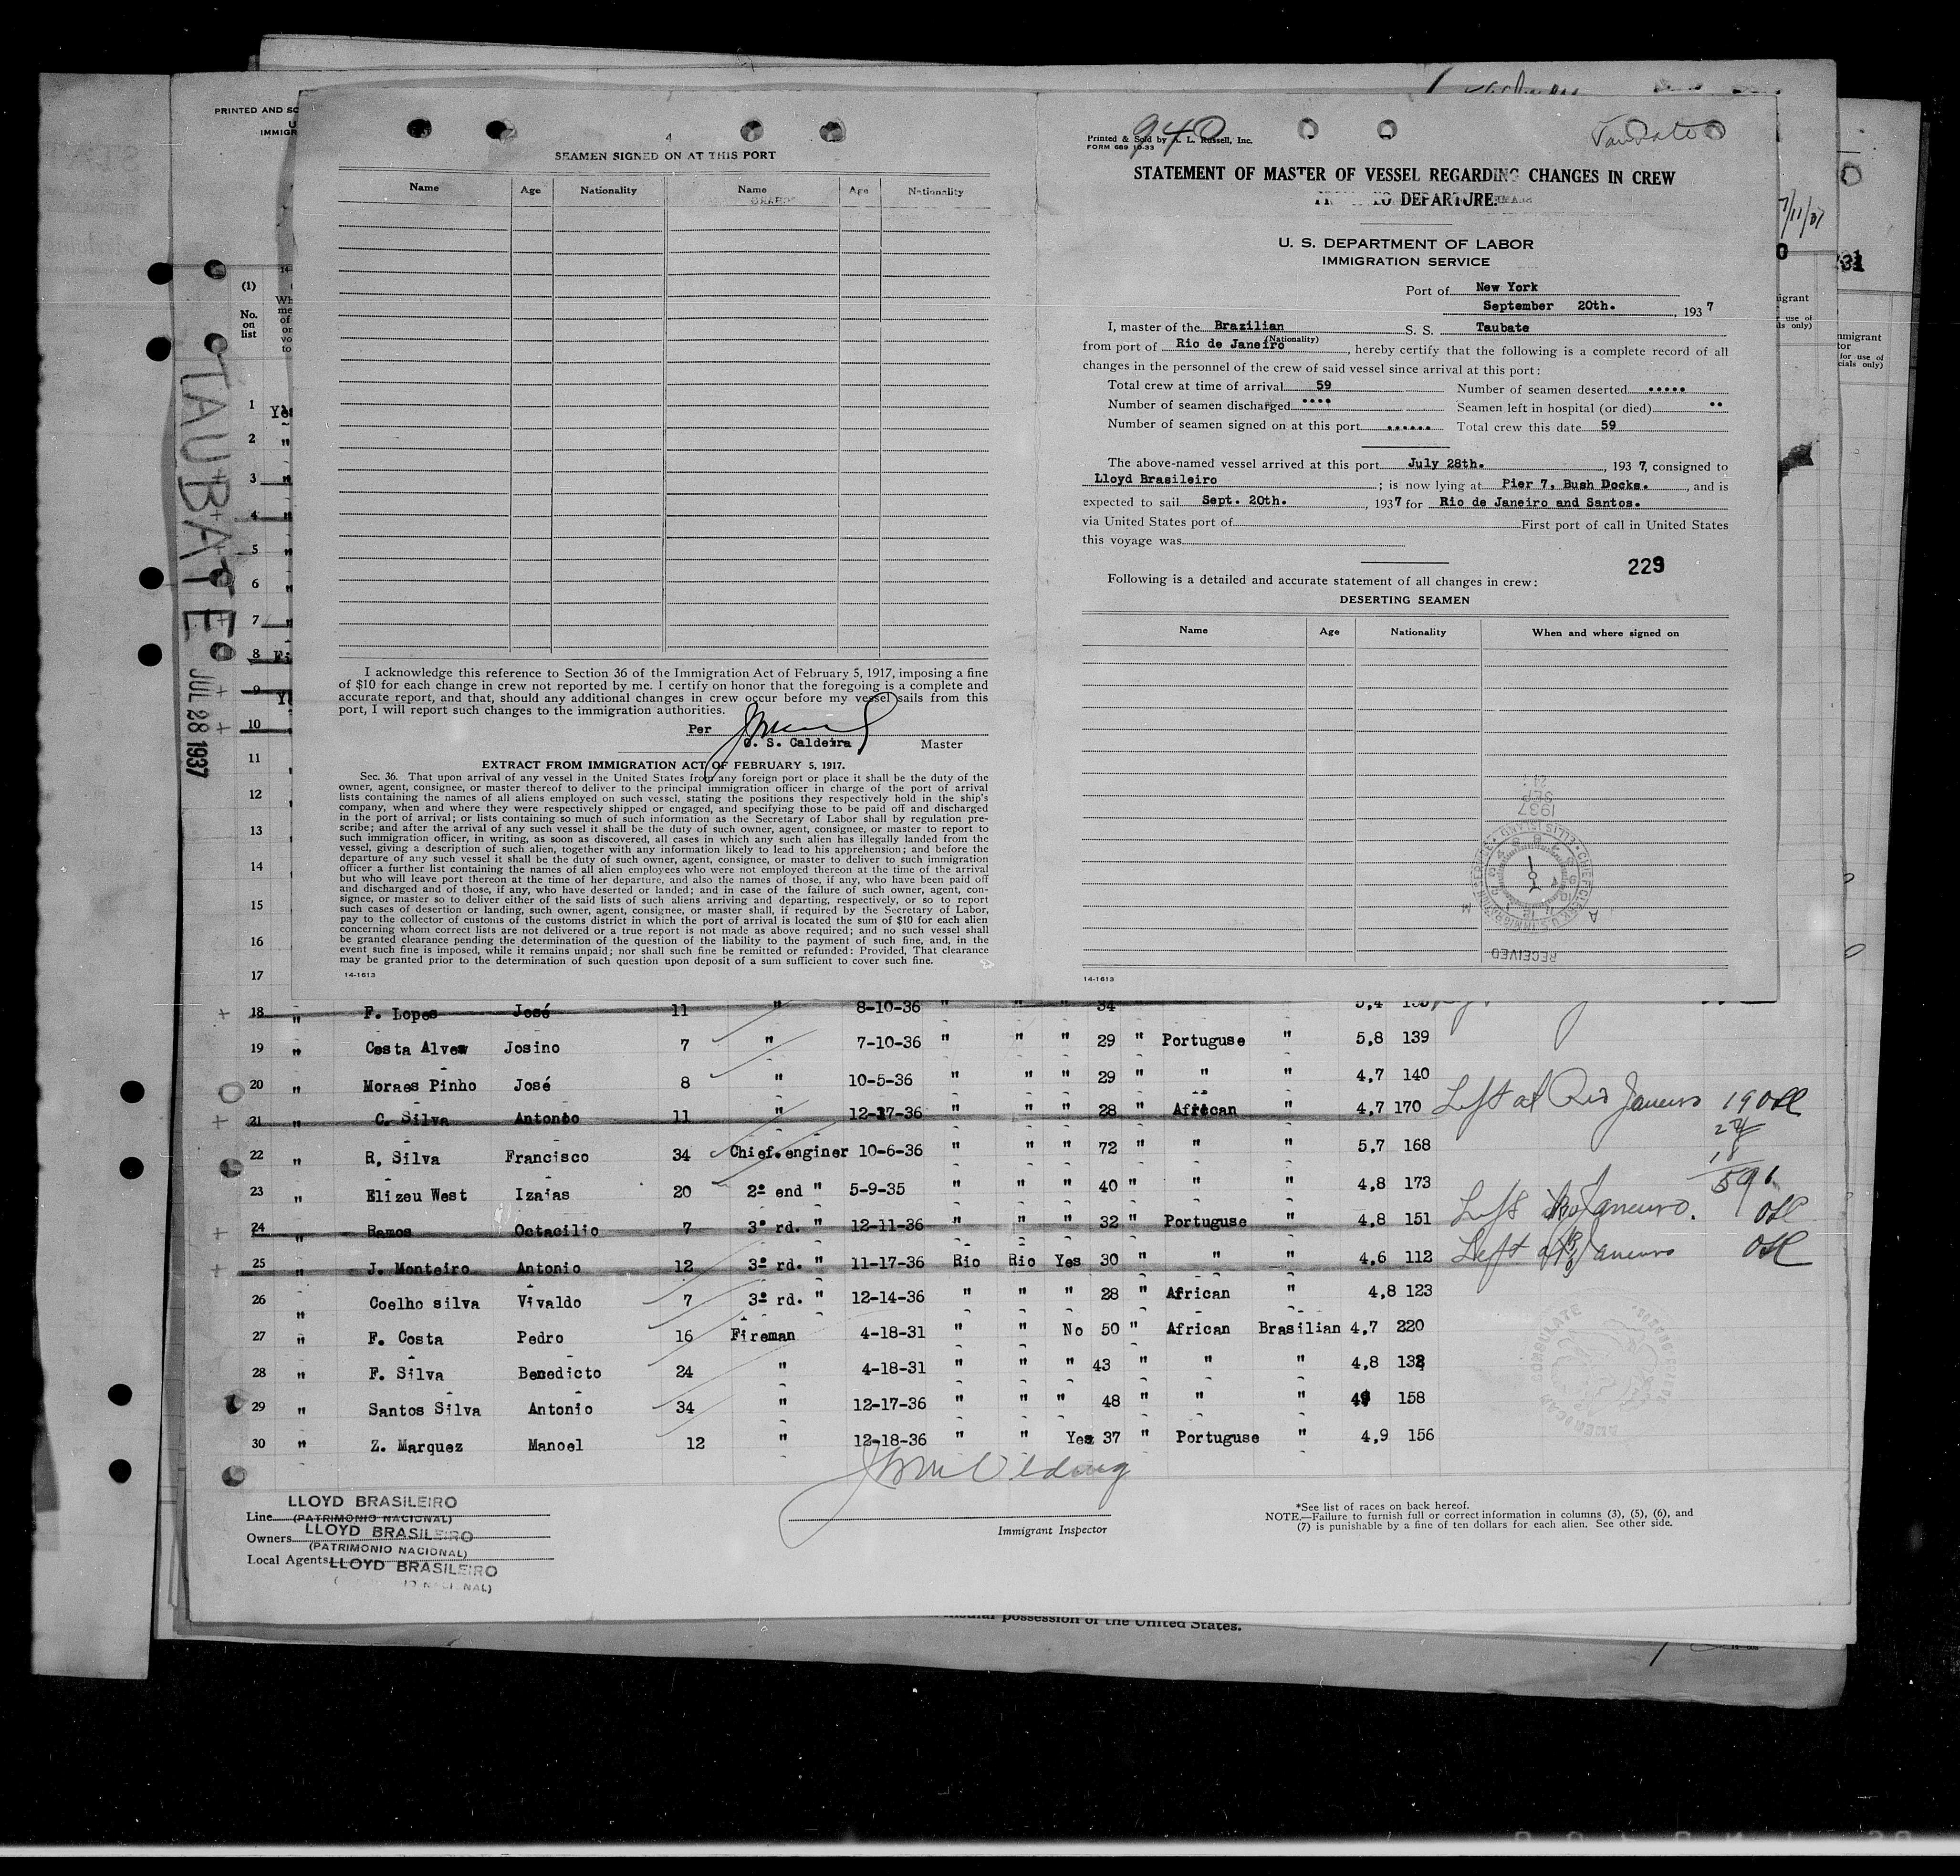 PRINTED AND SO
U
IMMIGR
4
SEAMEN SIGNED ON AT THIS PORT
Name Age Nationality Name Age Nationality
I acknowledge this reference to Section 36 of the Immigration Act of February 5, 1917, imposing a fine
of $10 for each change in crew not reported by me. I certify on honor that the foregoing is a complete and
accurate report, and that, should any additional changes in crew occur before my vessel sails from this
port, I will report such changes to the immigration authorities.
Per
S. Caldeira Master
EXTRACT FROM IMMIGRATION ACT OF FEBRUARY 5, 1917.
Sec. 36. That upon arrival of any vessel in the United States from any foreign port or place it shall be the duty of the
owner, agent, consignee, or master thereof to deliver to the principal immigration officer in charge of the port of arrival
lists containing the names of all aliens employed on such vessel, stating the positions they respectively hold in the ship's
company, when and where they were respectively shipped or engaged, and specifying those to be paid off and discharged
in the port of arrival; or lists containing so much of such information as the Secretary of Labor shall by regulation pre-
scribe; and after the arrival of any such vessel it shall be the duty of such owner, agent, consignee, or master to report to
such immigration officer, in writing, as soon as discovered, all cases in which any such alien has illegally landed from the
vessel, giving a description of such alien, together with any information likely to lead to his apprehension; and before the
departure of any such vessel it shall be the duty of such owner, agent, consignee, or master to deliver to such immigration
officer a further list containing the names of all alien employees who were not employed thereon at the time of the arrival
but who will leave port thereon at the time of her departure, and also the names of those, if any, who have been paid off
and discharged and of those, if any, who have deserted or landed; and in case of the failure of such owner, agent, con-
signee, or master so to deliver either of the said lists of such aliens arriving and departing, respectively, or so to report
such cases of desertion or landing, such owner, agent, consignee, or master shall, if required by the Secretary of Labor,
pay to the collector of customs of the customs district in which the port of arrival is located the sum of $10 for each alien
concerning whom correct lists are not delivered or a true report is not made as above required; and no such vessel shall
be granted clearance pending the determination of the question of the liability to the payment of such fine, and, in the
event such fine is imposed, while it remains unpaid; nor shall such fine be remitted or refunded: Provided, That clearance
may be granted prior to the determination of such question upon deposit of a sum sufficient to cover such fine.
14-1613
940
Taubate
Printed & Sold by A. L. Russell, Inc.
FORM 689 10-33
STATEMENT OF MASTER OF VESSEL REGARDING CHANGES IN CREW
TO DEPARTURE.
U. S. DEPARTMENT OF LABOR
IMMIGRATION SERVICE
Port of New York
September 20th., 1937
I, master of the Brazilian S. S. Taubate
(Nationality)
from port of Rio de Janeiro, hereby certify that the following is a complete record of all
changes in the personnel of the crew of said vessel since arrival at this port:
Total crew at time of arrival 59 Number of seamen deserted
Number of seamen discharged Seamen left in hospital (or died)
Number of seamen signed on at this port Total crew this date 59
The above-named vessel arrived at this port July 28th., 1937, consigned to
Lloyd Brasileiro; is now lying at Pier 7, Bush Docks., and is
expected to sail Sept. 20th., 1937 for Rio de Janeiro and Santos.
via United States port of First port of call in United States
this voyage was
229
Following is a detailed and accurate statement of all changes in crew:
DESERTING SEAMEN
Name Age Nationality When and where signed on
1937
RECEIVED
14-1613
TAUBATE
JUL 28 1937
(1)
No.
on
list
1
2
3
4
5
6
7
8
9
10
11
12
13
14
15
16
17
18 " F. Lopes José 11 " 8-10-36 " " 34
19 " Costa Alvew Josino 7 " 7-10-36 " " " 29 " Portuguse " 5,8 139
20 " Moraes Pinho José 8 " 10-5-36 " " " 29 " " " 4,7 140
21 " C. Silva Antonio 11 " 12-17-36 " " " 28 " African " 4,7 170 Left at Rio Janeiro
22 " R, Silva Francisco 34 Chief.enginer 10-6-36 " " " 72 " " " 5,7 168
23 " Elizeu West Izaias 20 2º end " 5-9-35 " " " 40 " " " 4,8 173
24 " Ramos Octacilio 7 3º rd. " 12-11-36 " " " 32 " Portuguse " 4,8 151 Left Rio Janeiro.
25 " J. Monteiro Antonio 12 3º rd. " 11-17-36 Rio Rio Yes 30 " " " 4,6 112 Left at Rio Janeiro
26 " Coelho silva Vivaldo 7 3º rd. " 12-14-36 " " " 28 " African " 4,8 123
27 " F. Costa Pedro 16 Fireman 4-18-31 " " No 50 " African Brasilian 4,7 220
28 " F. Silva Benedicto 24 " 4-18-31 " " " 43 " " " 4,8 138
29 " Santos Silva Antonio 34 " 12-17-36 " " " 48 " " " 158
30 " Z. Marquez Manoel 12 " 12-18-36 " " Yes 37 " Portuguse " 4,9 156
Immigrant Inspector
LLOYD BRASILEIRO
Line (PATRIMONIO NACIONAL)
Owners LLOYD BRASILEIRO
(PATRIMONIO NACIONAL)
Local Agents LLOYD BRASILEIRO
*See list of races on back hereof.
NOTE.—Failure to furnish full or correct information in columns (3), (5), (6), and
(7) is punishable by a fine of ten dollars for each alien. See other side.
possession of the United States.